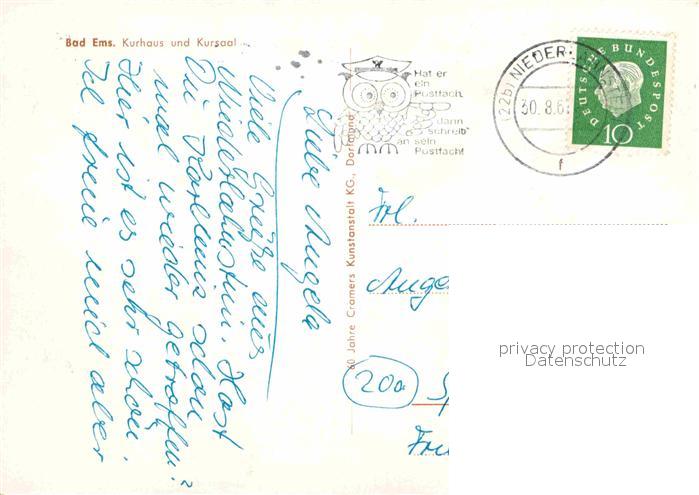 Bad Ems. Kurhaus und Kursaal
Liebe Angela
Viele Grüße aus
Niederlahnstein. Hast
Du Karlheinz schon
mal wieder getroffen?
Hier ist es sehr schön.
Ich freue mich aber
60 Jahre Cramers Kunstanstalt KG., Dortmund
Hat er
ein
Postfach,
dann
"schreib"
an sein
Postfach!
(22b) NIEDER
30. 8. 6
f
DEUTSCHE BUNDESPOST
10
Frl.
Ange
20a
privacy protection
Datenschutz